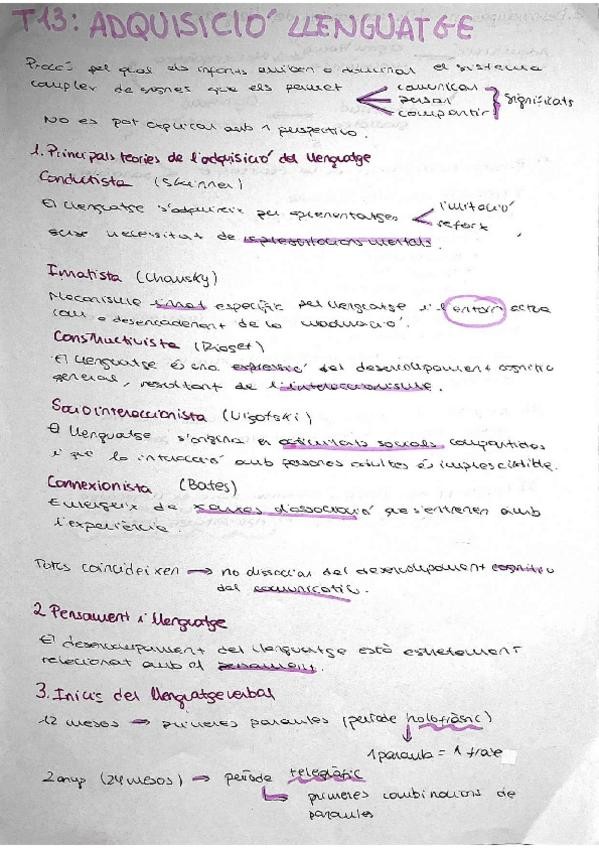 T13: ADQUISICIÓ LLENGUATGE
Procés pel qual els infants arriben a dominar el sistema
complex de signes que els permet comunicar
pensar
compartir
significats
No es pot explicar amb 1 perspectiva.
1. Principals teories de l'adquisició del llenguatge
Conductista (Skinner)
El llenguatge s'adquireix per aprenentatges imitació
reforç
sense necessitat de representacions mentals.
Innatista (Chomsky)
Mecanisme innat específic pel llenguatge i l'entorn actua
com a desencadenant de la maduració.
Constructivista (Piaget)
El llenguatge és una expressió del desenvolupament cognitiu
general, resultant de l'interaccionisme.
Sociointeraccionista (Vigotski)
El llenguatge s'origina en activitats socials compartides
i que la interacció amb persones adultes és imprescindible.
Connexionista (Bates)
Emergeix de xarxes d'associació que s'entrenen amb
l'experiència.
Totes coincideixen → no dissociar del desenvolupament cognitiu
del comunicatiu.
2 Pensament i llenguatge
El desenvolupament del llenguatge està estretament
relacionat amb el pensament.
3. Inicis del llenguatge verbal
12 mesos → primeres paraules (període holofràsic)
1 paraula = 1 frase
2 anys (24 mesos) → període telegràfic
primeres combinacions de
paraules